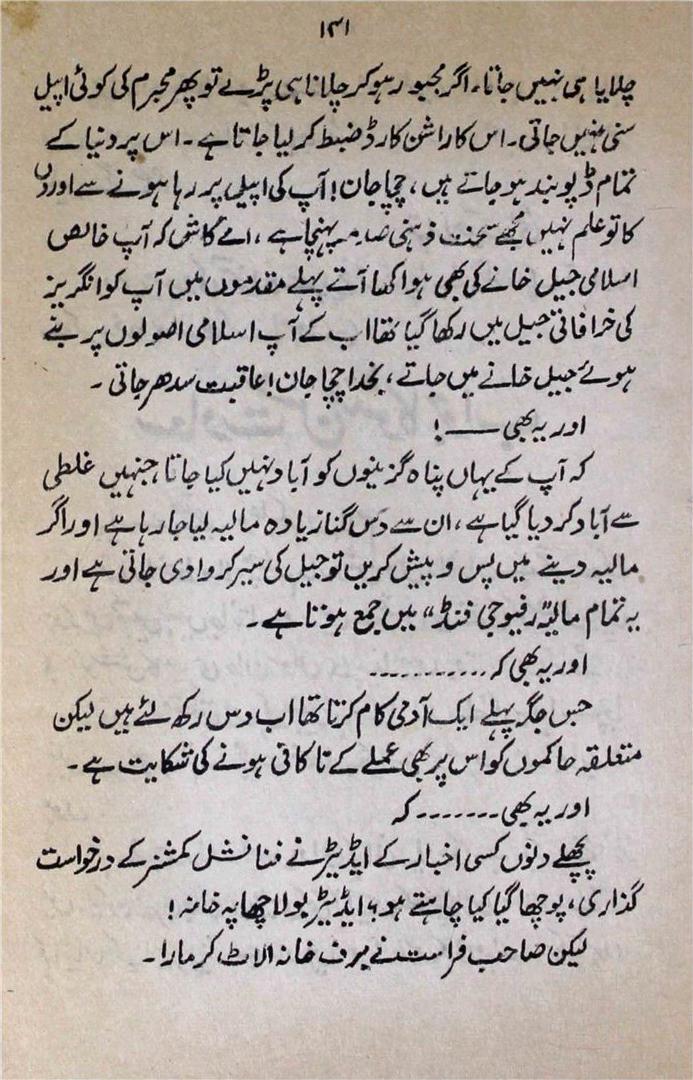 ۱۳۱
چلایا ہی نہیں جاتا۔ اگر مجبور ہو کر چلانا ہی پڑے تو پھر مجرم کی کوئی اپیل
سنی نہیں جاتی۔ اس کا راشن کارڈ ضبط کر لیا جاتا ہے۔ اس پر دنیا کے
تمام ڈپو بند ہو جاتے ہیں، چچا جان! آپ کی اپیل پر رہا ہونے سے اوروں
کا تو علم نہیں مجھے سخت ذہنی صدمہ پہنچا ہے، اے کاش کہ آپ خالص
اسلامی جیل خانے کی بھی ہوا کھا آتے پہلے مقدموں میں آپ کو انگریز
کی خرافاتی جیل میں رکھا گیا تھا اب کے آپ اسلامی اصولوں پر بنے
ہوئے جیل خانے میں جاتے، بخدا چچا جان! عاقبت سدھر جاتی۔
اور یہ بھی ——!
کہ آپ کے یہاں پناہ گزینوں کو آباد نہیں کیا جاتا جنہیں غلطی
سے آباد کر دیا گیا ہے، ان سے دس گنا زیادہ مالیہ لیا جا رہا ہے اور اگر
مالیہ دینے میں پس و پیش کریں تو جیل کی سیر کروا دی جاتی ہے اور
یہ تمام مالیہ ”رفیوجی فنڈ“ میں جمع ہوتا ہے۔
اور یہ بھی کہ...........
جس جگہ پہلے ایک آدمی کام کرتا تھا اب دس رکھ لئے ہیں لیکن
متعلقہ حاکموں کو اس پر بھی عملے کے ناکافی ہونے کی شکایت ہے۔
اور یہ بھی ....... کہ
پچھلے دنوں کسی اخبار کے ایڈیٹر نے فنانشل کمشنر کے درخواست
گذاری، پوچھا گیا کیا چاہتے ہو؟ ایڈیٹر بولا چھاپہ خانہ!
لیکن صاحب فراست نے برف خانہ الاٹ کر مارا۔